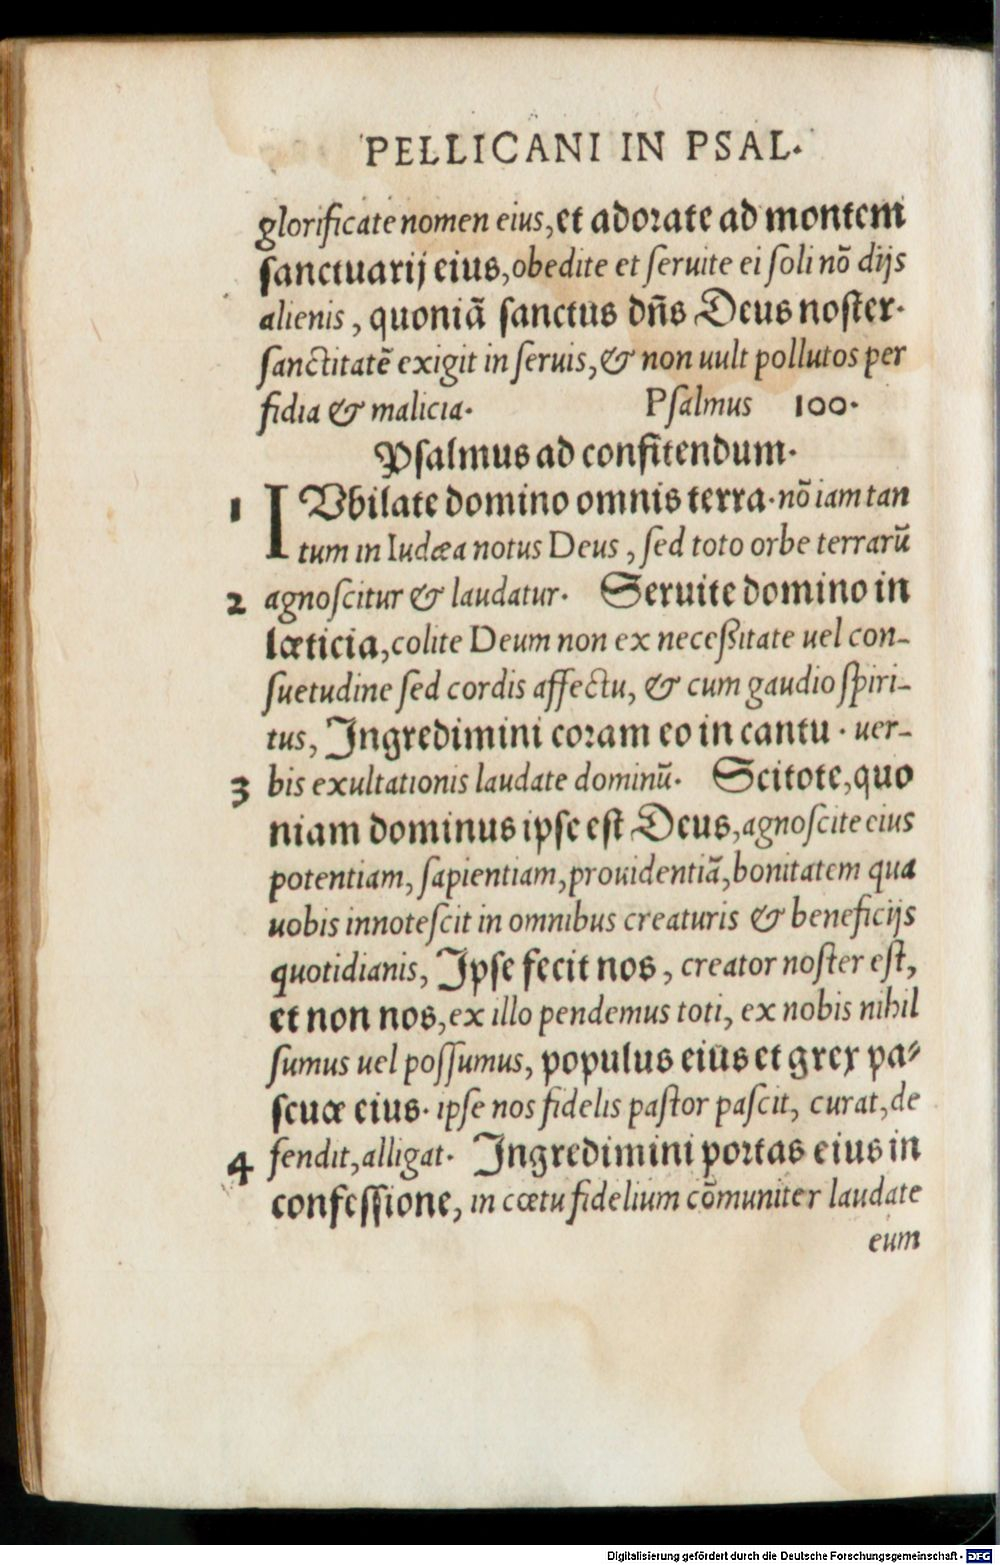 PELLICANI IN PSAL.
glorificate nomen eius, et adorate ad montem
ſanctuarij eius, obedite et ſeruite ei ſoli nõ dijs
alienis, quoniã ſanctus dñs Deus noſter.
ſanctitatẽ exigit in ſeruis, & non uult pollutos per
fidia & malicia. Pſalmus 100.
Pſalmus ad confitendum.
1 IVbilate domino omnis terra. nõ iam tan
tum in Iudæa notus Deus, ſed toto orbe terrarũ
2 agnoſcitur & laudatur. Seruite domino in
læticia, colite Deum non ex neceßitate uel con-
ſuetudine ſed cordis affectu, & cum gaudio ſpiri-
tus, Ingredimini coram eo in cantu. uer-
3 bis exultationis laudate dominũ. Scitote, quo
niam dominus ipſe eſt Deus, agnoſcite eius
potentiam, ſapientiam, prouidentiã, bonitatem qua
uobis innoteſcit in omnibus creaturis & beneficijs
quotidianis, Ipſe fecit nos, creator noſter eſt,
et non nos, ex illo pendemus toti, ex nobis nihil
ſumus uel poſſumus, populus eius et grex pa-
ſcuæ eius. ipſe nos fidelis paſtor paſcit, curat, de
4 fendit, alligat. Ingredimini portas eius in
confeſſione, in cœtu fidelium cõmuniter laudate
eum
Digitalisierung gefördert durch die Deutsche Forschungsgemeinschaft - DFG